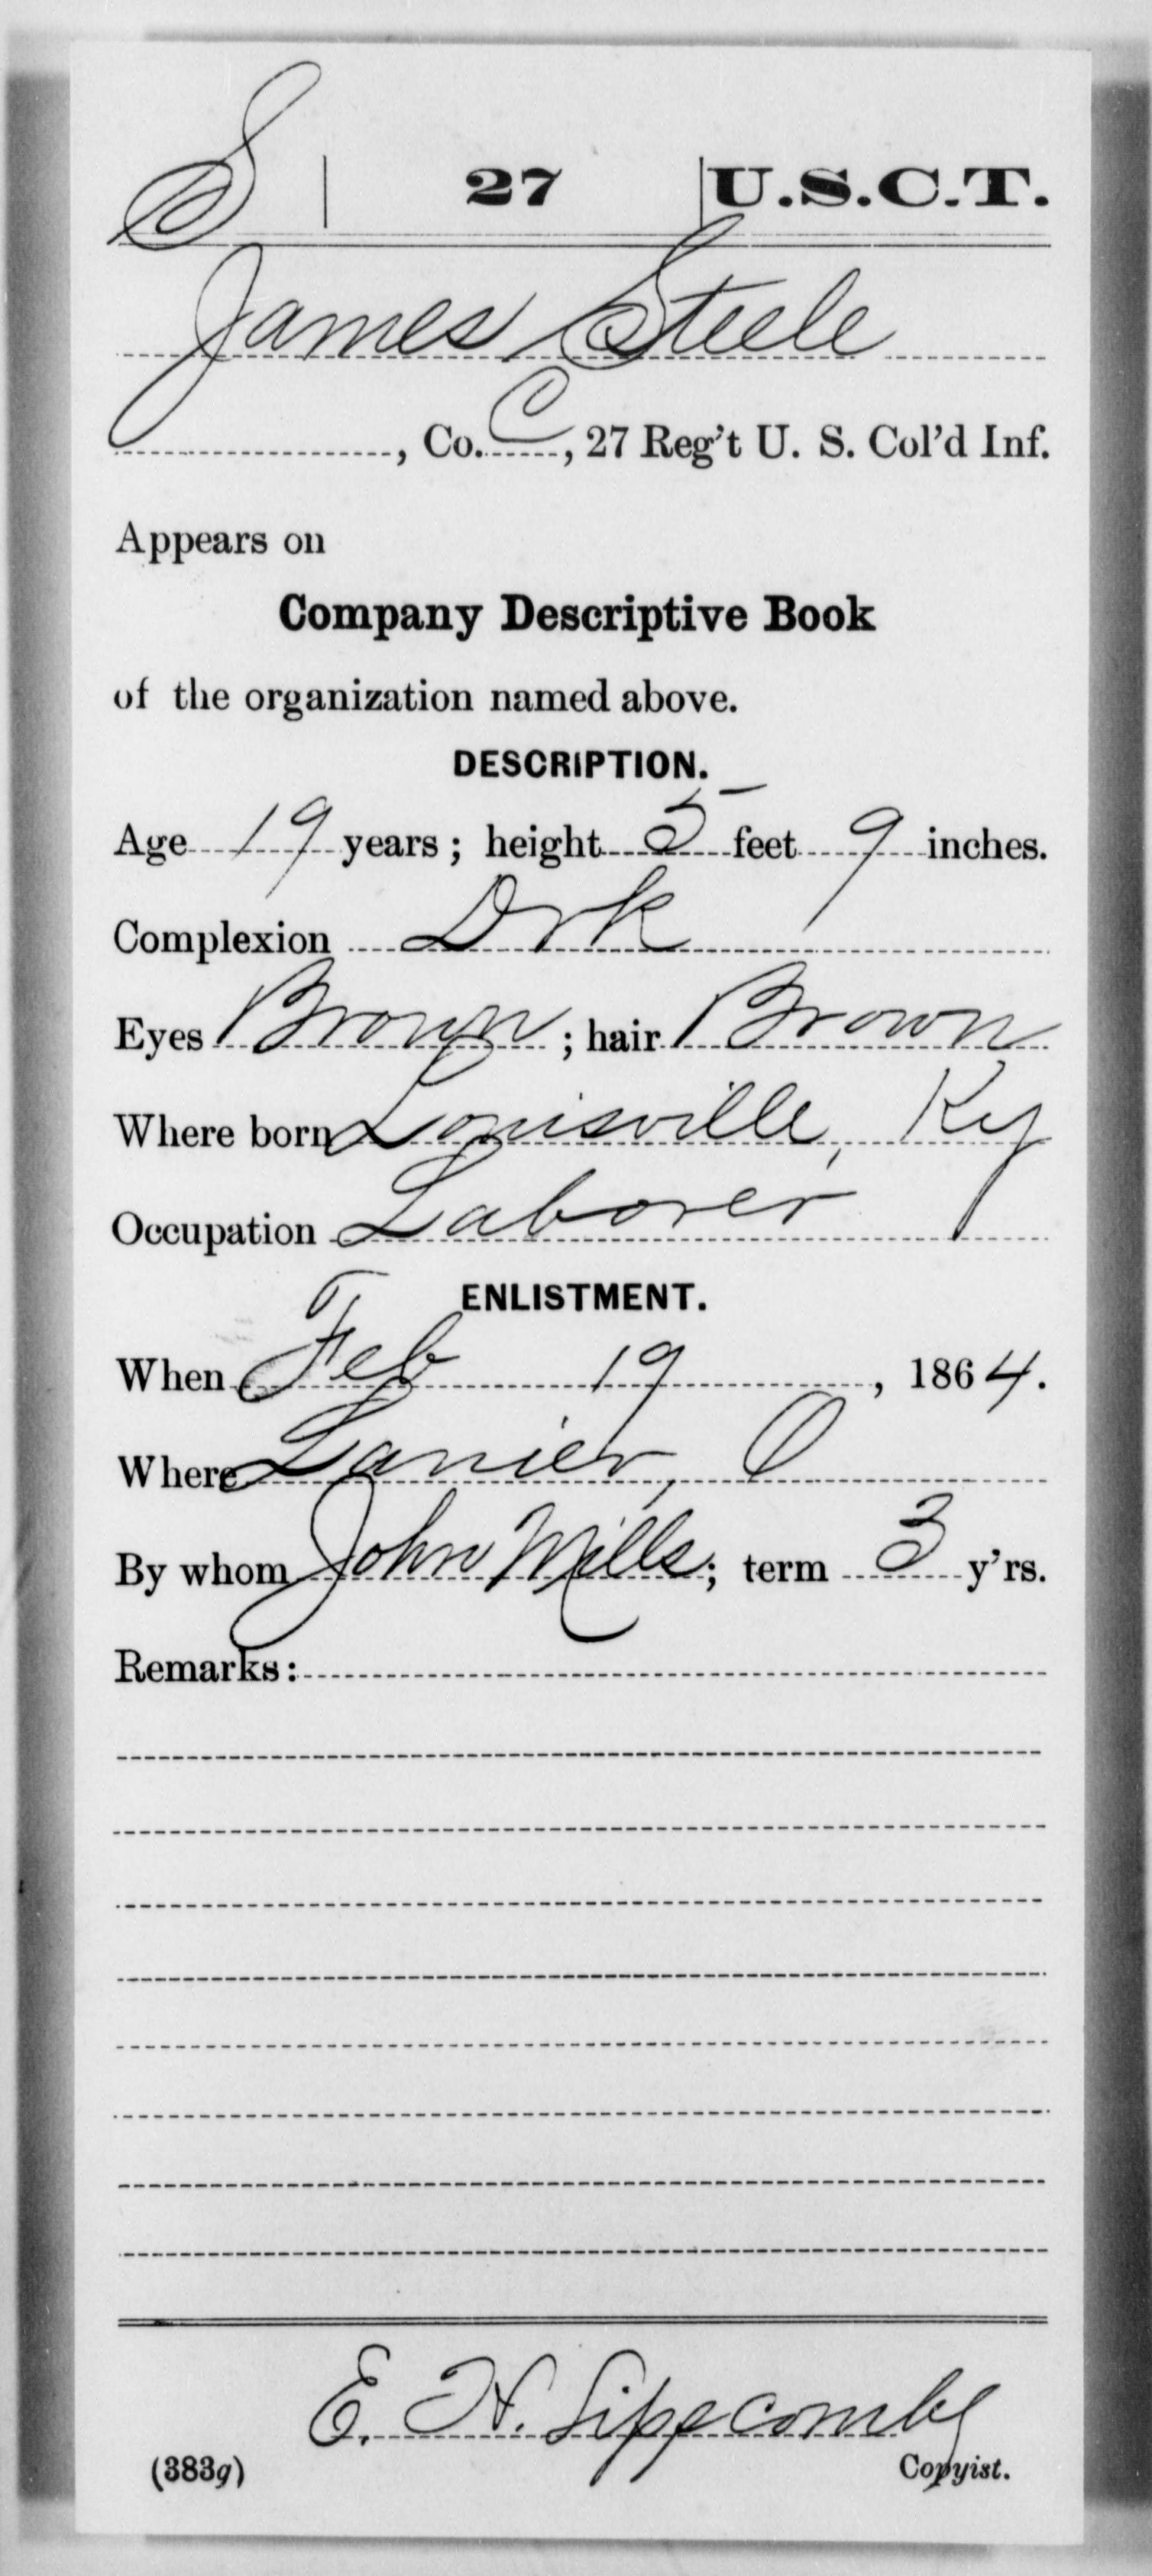 S | 27 | U.S.C.T.
James Steele
, Co. C, 27 Reg't U. S. Col'd Inf.
Appears on
Company Descriptive Book
of the organization named above.
DESCRIPTION.
Age 19 years; height 5 feet 9 inches.
Complexion Drk
Eyes Brown; hair Brown
Where born Louisville, Ky
Occupation Laborer
ENLISTMENT.
When Feb 19, 1864.
Where Lanier, O
By whom John Mills; term 3 y'rs.
Remarks:
E. H. Lippcombe
(383g) Copyist.